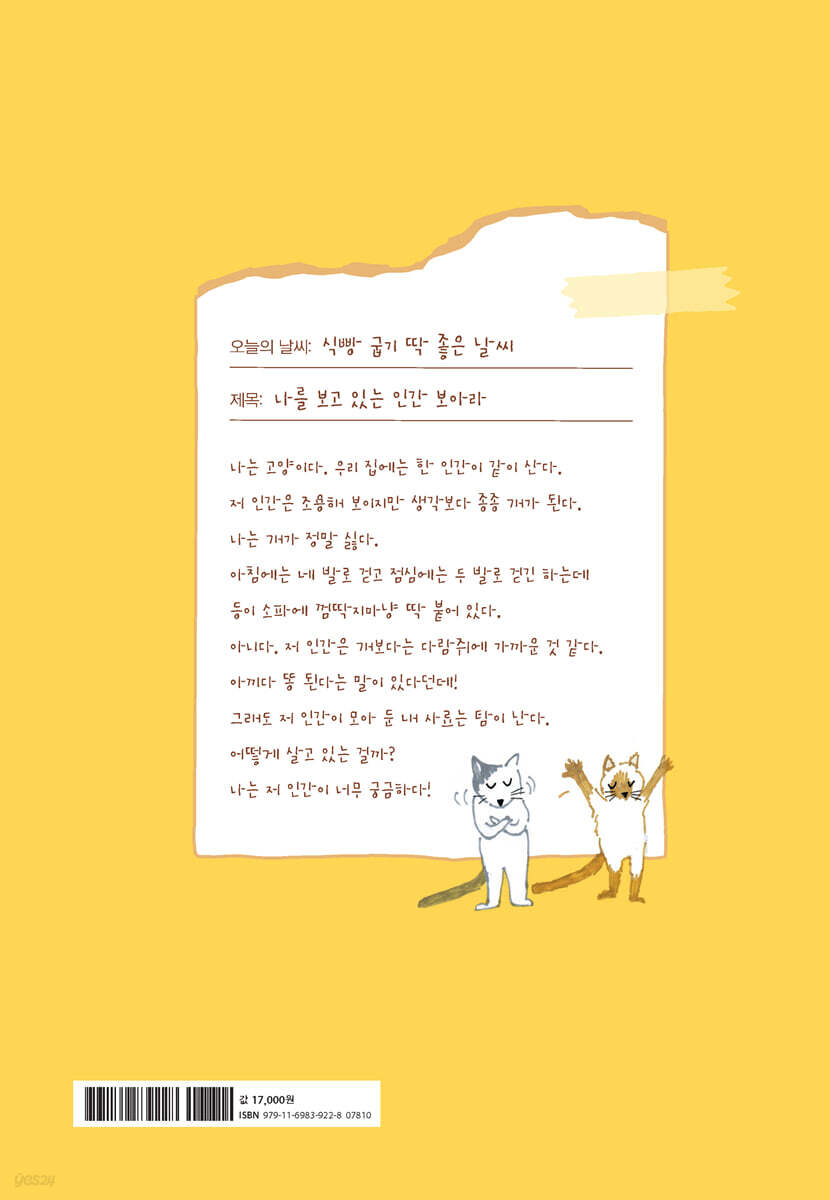 오늘의 날씨: 식빵 굽기 딱 좋은 날씨
제목: 나를 보고 있는 인간 보아라
나는 고양이다. 우리 집에는 한 인간이 같이 산다.
저 인간은 조용해 보이지만 생각보다 종종 개가 된다.
나는 개가 정말 싫다.
아침에는 네 발로 걷고 점심에는 두 발로 걷긴 하는데
등이 소파에 껌딱지마냥 딱 붙어 있다.
아니다. 저 인간은 개보다는 다람쥐에 가까운 것 같다.
아끼다 똥 된다는 말이 있다던데!
그래도 저 인간이 모아 둔 내 사료는 탐이 난다.
어떻게 살고 있는 걸까?
나는 저 인간이 너무 궁금하다!
값 17,000원
ISBN 979-11-6983-922-8 07810
yes24